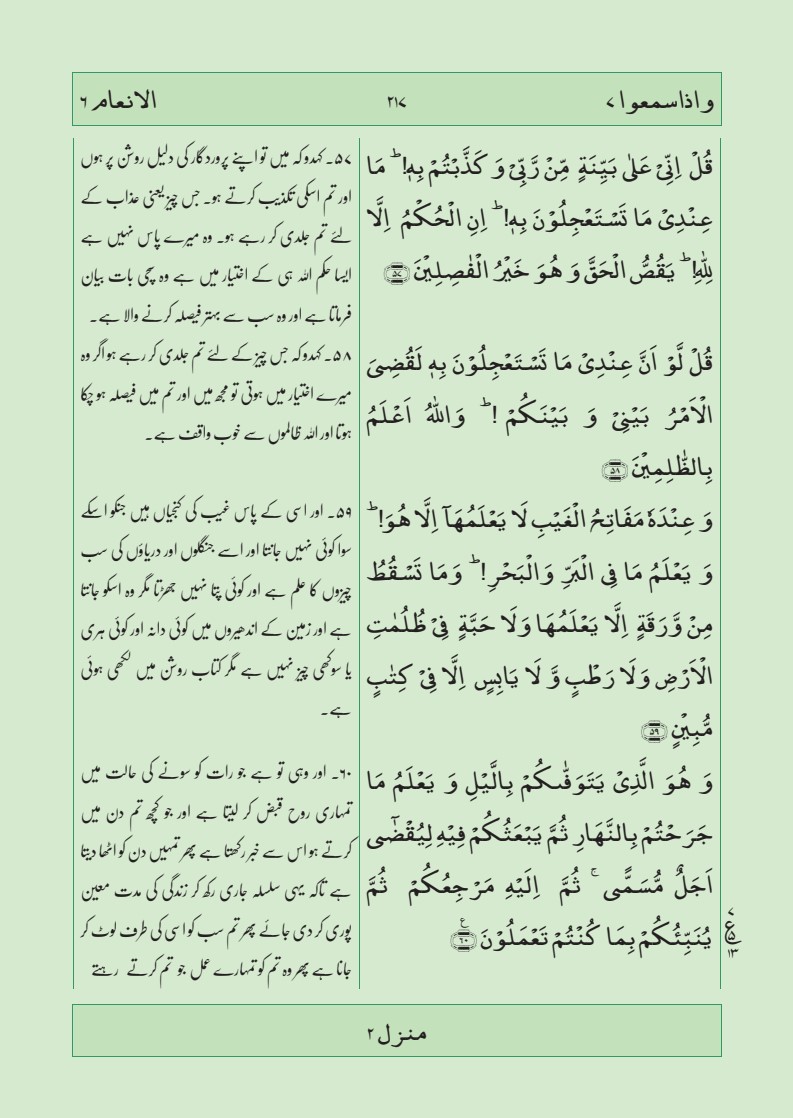 واذاسمعوا ۷
۲۱۷
الانعام ۶
قُلْ اِنِّیْ عَلٰی بَیِّنَةٍ مِّنْ رَّبِّیْ وَ کَذَّبْتُمْ بِهٖ! ؕ مَا
عِنْدِیْ مَا تَسْتَعْجِلُوْنَ بِهٖ! ؕ اِنِ الْحُكْمُ اِلَّا
لِلّٰهِ! ؕ یَقُصُّ الْحَقَّ وَ هُوَ خَیْرُ الْفٰصِلِیْنَ ﴿۵۷﴾
قُلْ لَّوْ اَنَّ عِنْدِیْ مَا تَسْتَعْجِلُوْنَ بِهٖ لَقُضِیَ
الْاَمْرُ بَیْنِیْ وَ بَیْنَكُمْ ! ؕ وَاللّٰهُ اَعْلَمُ
بِالظّٰلِمِیْنَ ﴿۵۸﴾
وَ عِنْدَهٗ مَفَاتِحُ الْغَیْبِ لَا یَعْلَمُهَاۤ اِلَّا هُوَ! ؕ
وَ یَعْلَمُ مَا فِی الْبَرِّ وَالْبَحْرِ! ؕ وَمَا تَسْقُطُ
مِنْ وَّرَقَةٍ اِلَّا یَعْلَمُهَا وَلَا حَبَّةٍ فِیْ ظُلُمٰتِ
الْاَرْضِ وَلَا رَطْبٍ وَّ لَا یَابِسٍ اِلَّا فِیْ كِتٰبٍ
مُّبِیْنٍ ﴿۵۹﴾
وَ هُوَ الَّذِیْ یَتَوَفّٰىكُمْ بِالَّیْلِ وَ یَعْلَمُ مَا
جَرَحْتُمْ بِالنَّهَارِ ثُمَّ یَبْعَثُكُمْ فِیْهِ لِیُقْضٰۤی
اَجَلٌ مُّسَمًّی ۚ ثُمَّ اِلَیْهِ مَرْجِعُكُمْ ثُمَّ
یُنَبِّئُكُمْ بِمَا كُنْتُمْ تَعْمَلُوْنَ ﴿۶۰﴾ ع
۷
ع ۵
۱۳
۵۷۔ کہدو کہ میں تو اپنے پروردگار کی دلیل روشن پر ہوں
اور تم اسکی تکذیب کرتے ہو۔ جس چیز یعنی عذاب کے
لئے تم جلدی کر رہے ہو۔ وہ میرے پاس نہیں ہے
ایسا حکم اللہ ہی کے اختیار میں ہے وہ سچی بات بیان
فرماتا ہے اور وہ سب سے بہتر فیصلہ کرنے والا ہے۔
۵۸۔ کہدو کہ جس چیز کے لئے تم جلدی کر رہے ہو اگر وہ
میرے اختیار میں ہوتی تو مجھ میں اور تم میں فیصلہ ہو چکا
ہوتا اور اللہ ظالموں سے خوب واقف ہے۔
۵۹۔ اور اسی کے پاس غیب کی کنجیاں ہیں جنکو اسکے
سوا کوئی نہیں جانتا اور اسے جنگلوں اور دریاؤں کی سب
چیزوں کا علم ہے اور کوئی پتا نہیں جھڑتا مگر وہ اسکو جانتا
ہے اور زمین کے اندھیروں میں کوئی دانہ اور کوئی ہری
یا سوکھی چیز نہیں ہے مگر کتاب روشن میں لکھی ہوئی
ہے۔
۶۰۔ اور وہی تو ہے جو رات کو سونے کی حالت میں
تمہاری روح قبض کر لیتا ہے اور جو کچھ تم دن میں
کرتے ہو اس سے خبر رکھتا ہے پھر تمہیں دن کو اٹھا دیتا
ہے تاکہ یہی سلسلہ جاری رکھ کر زندگی کی مدت معین
پوری کر دی جائے پھر تم سب کو اسی کی طرف لوٹ کر
جانا ہے پھر وہ تم کو تمہارے عمل جو تم کرتے رہتے
منزل ۲